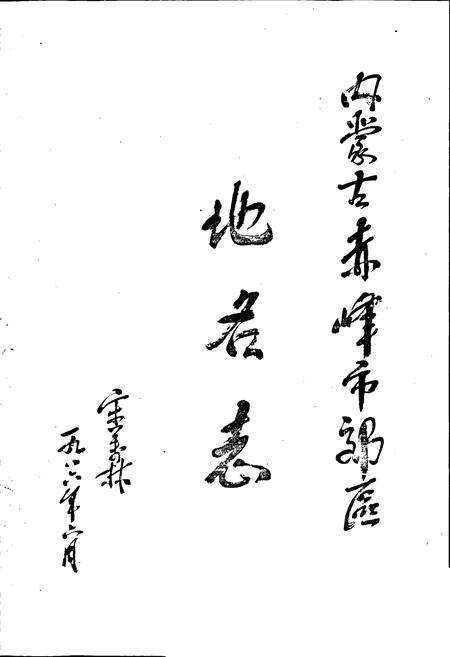 内蒙古赤峰市郊區
地名志
宋玉林
一九八六年六月